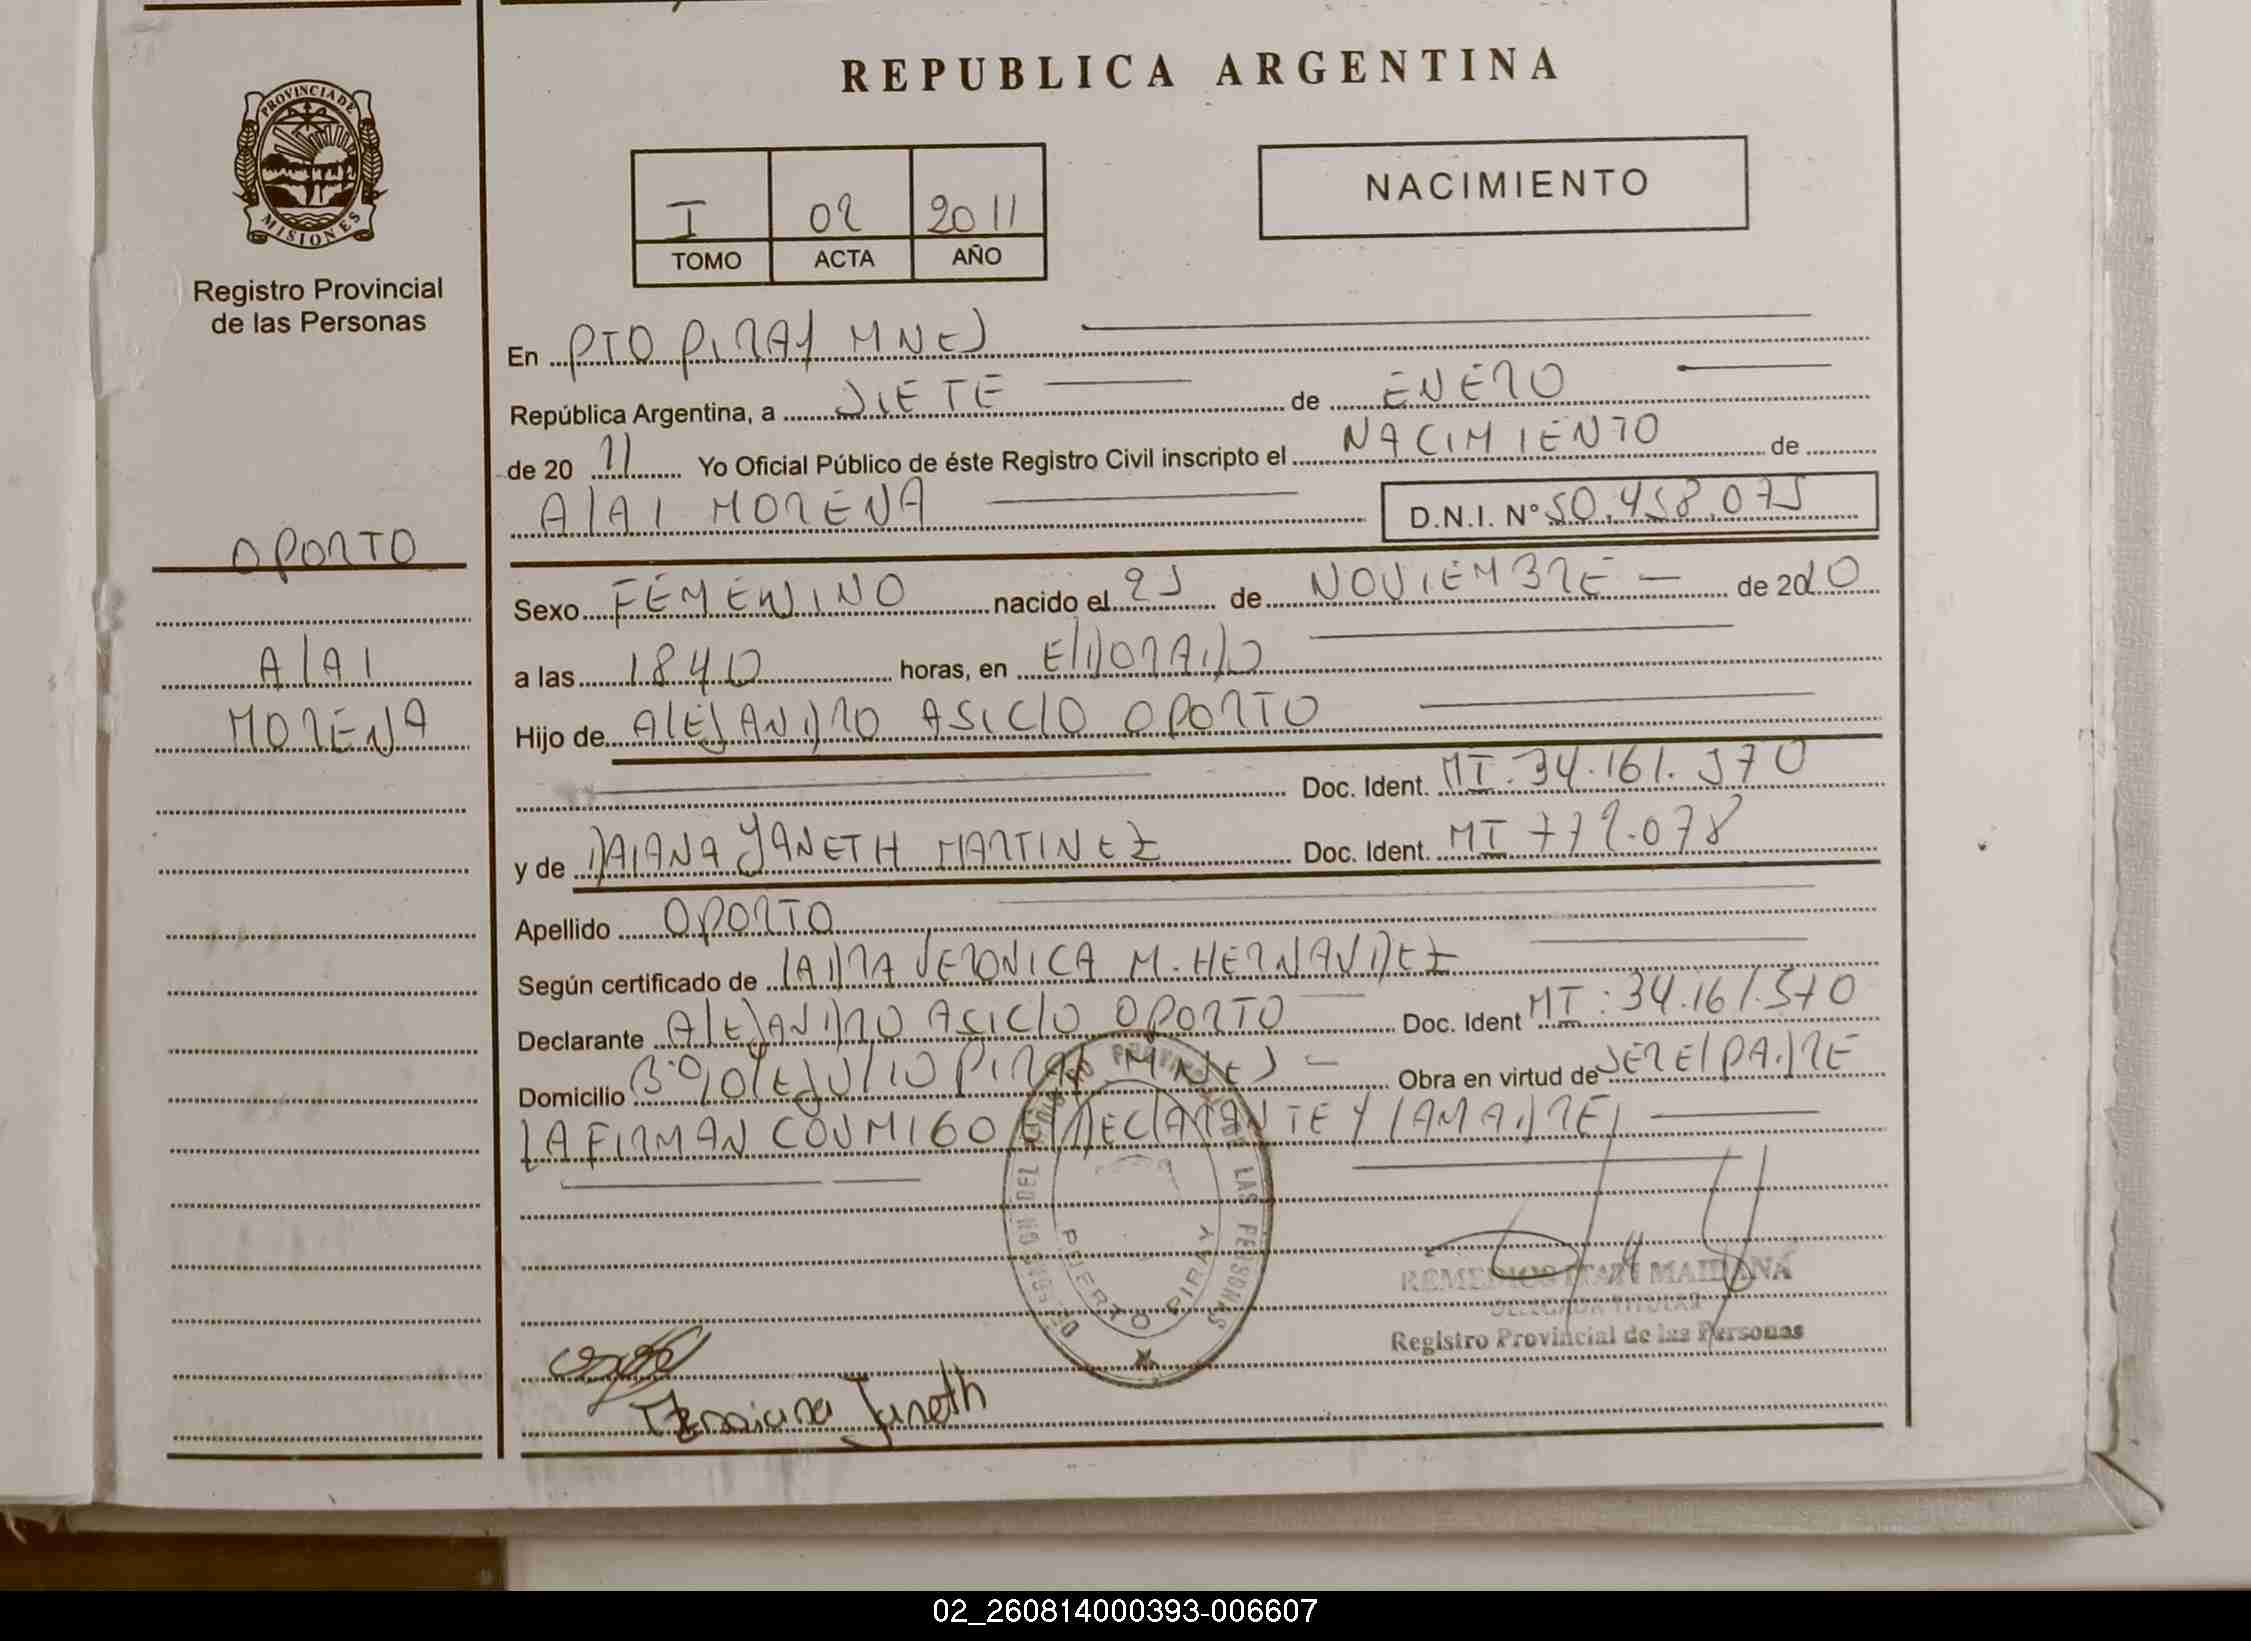 REPUBLICA ARGENTINA
PROVINCIA DE
MISIONES
Registro Provincial
de las Personas
NACIMIENTO
I 02 2011
TOMO ACTA AÑO
En PTO PIRAY MNES
República Argentina, a SIETE de ENERO
de 20 11 Yo Oficial Público de éste Registro Civil inscripto el NACIMIENTO de
AlAI MORENA D.N.I. Nº 50.458.075
OPORTO
AlAI
MORENA
Sexo FEMENINO nacido el de NOVIEMBRE de 2010
a las 1840 horas, en ElDORADO
Hijo de AlEJANDRO ASIClO OPORTO
Doc. Ident. MI. 34.161.570
y de DAIANA YANETH MARTINEZ Doc. Ident. MI 772.078
Apellido OPORTO
Según certificado de lAURA VERONICA M. HERNANDEZ
Declarante AlEJANDRO ASIClO OPORTO Doc. Ident MI: 34.161.570
Domicilio Bº 9 DE JUlIO PIRAY MNES Obra en virtud de SER El PADRE
lA FIRMAN CONMIGO El DEClARANTE Y lA MADRE
PUERTO PIRAY
LAS PERSONAS
REMEDIOS ITATI MAIDANA
DELEGADA TITULAR
Registro Provincial de las Personas
Janeth
02_260814000393-006607